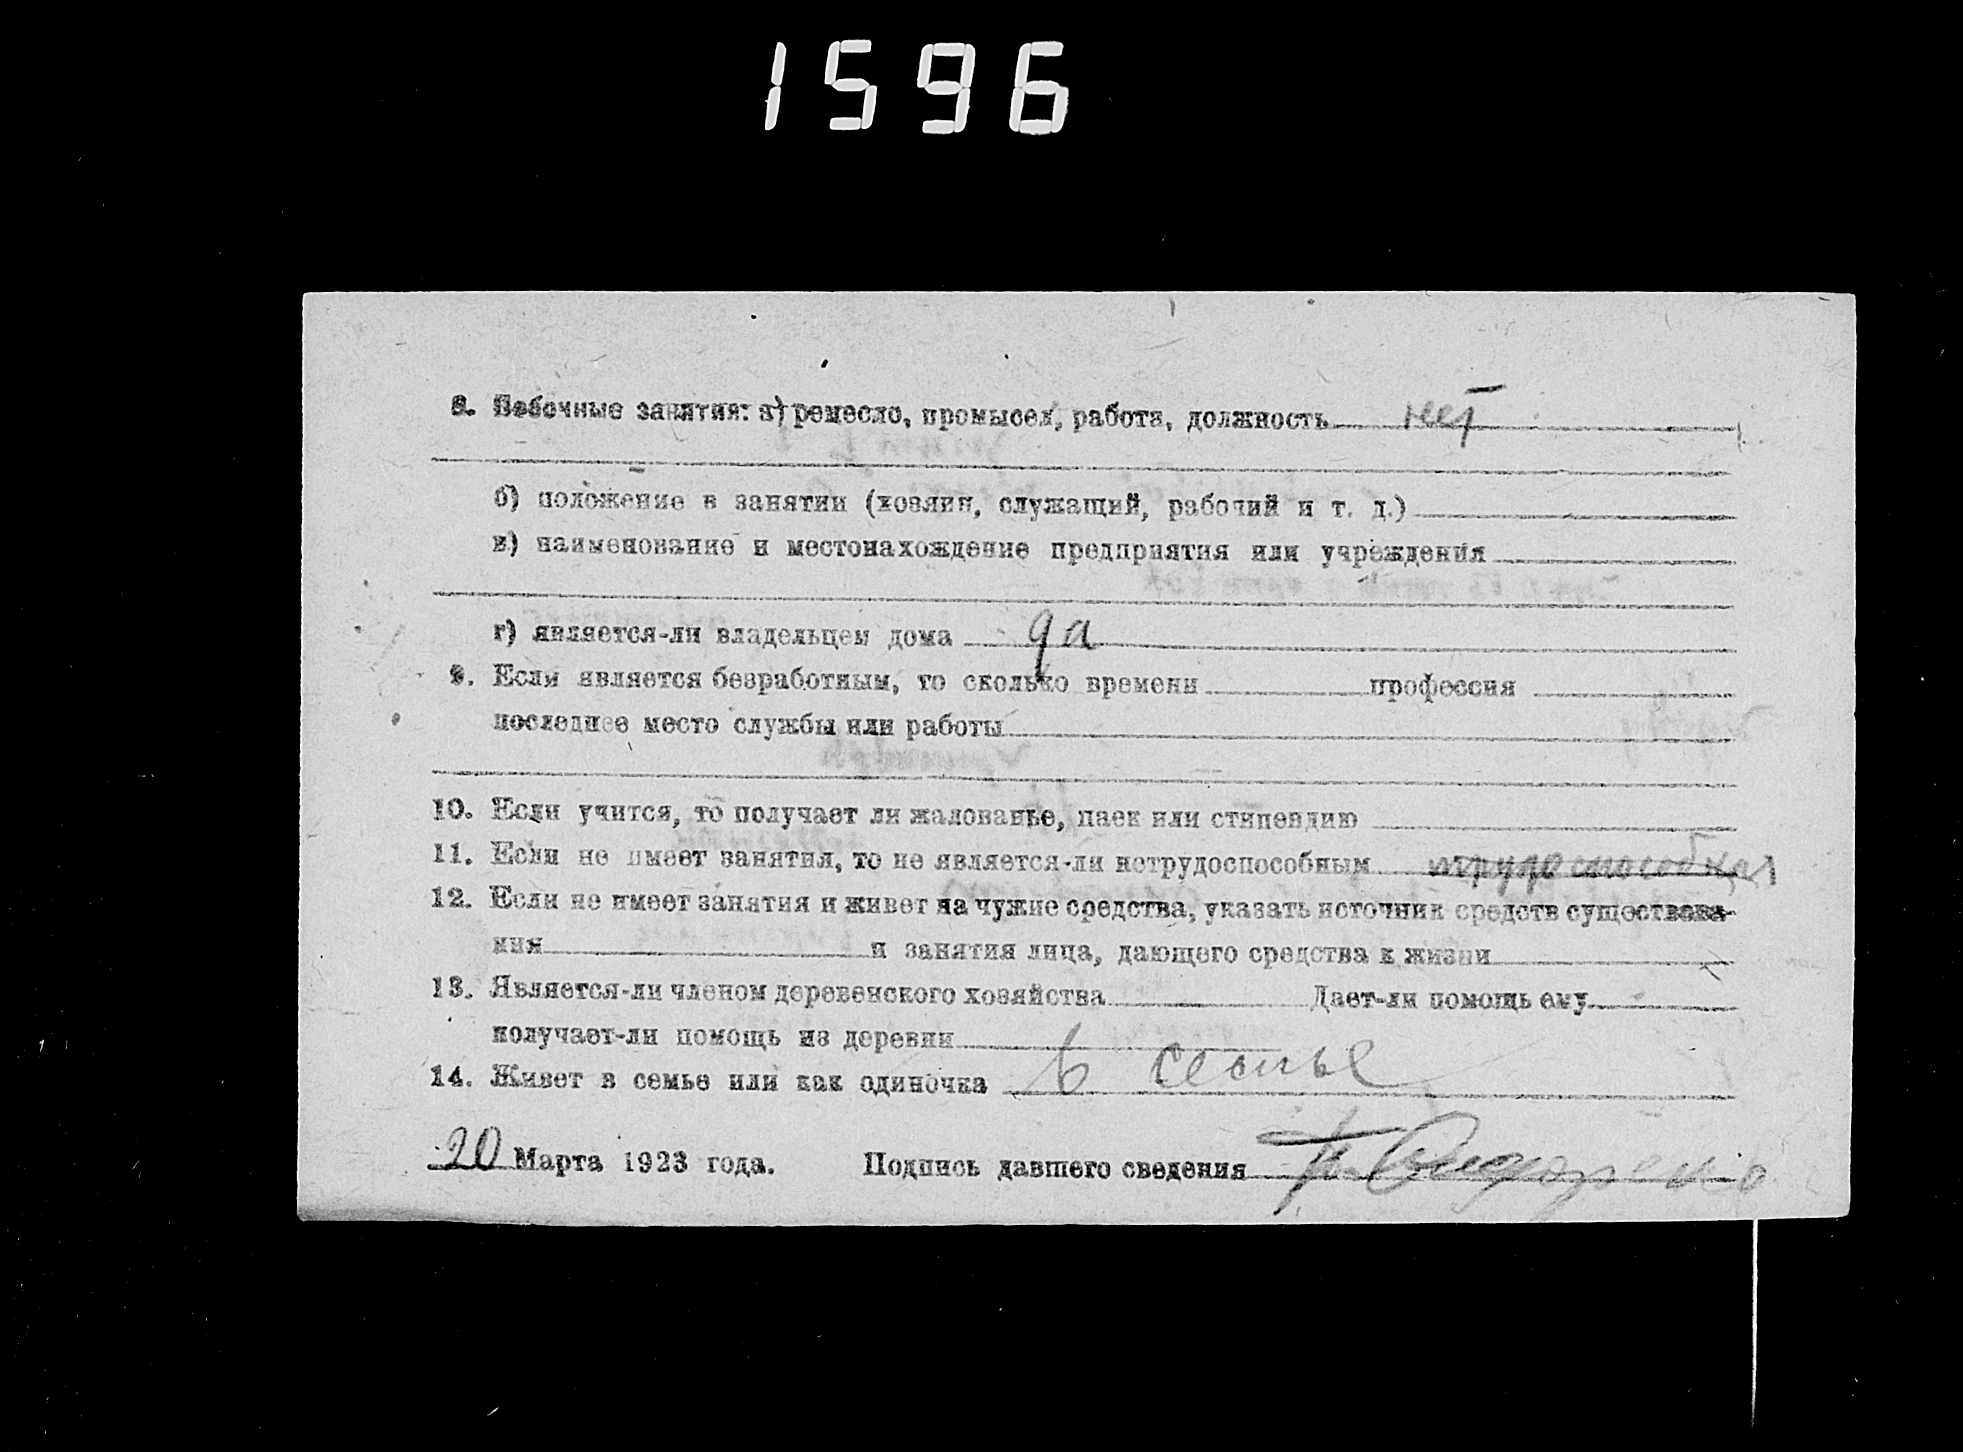 1596
8. Побочные занятия: а) ремесло, промысел, работа, должность нет
б) положение в занятии (хозяин, служащий, рабочий и т. д.)
в) наименование и местонахождение предприятия или учреждения
г) является-ли владельцем дома да
9. Если является безработным, то сколько времени профессия
последнее место службы или работы
10. Если учится, то получает ли жалованье, паек или стипендию
11. Если не имеет занятия, то не является-ли нетрудоспособным трудоспособная
12. Если не имеет занятия и живет на чужие средства, указать источник средств существова-
ния и занятия лица, дающего средства к жизни
13. Является-ли членом деревенского хозяйства Дает-ли помощь ему
получает-ли помощь из деревни
14. Живет в семье или как одиночка в семье
20 Марта 1923 года. Подпись давшего сведения